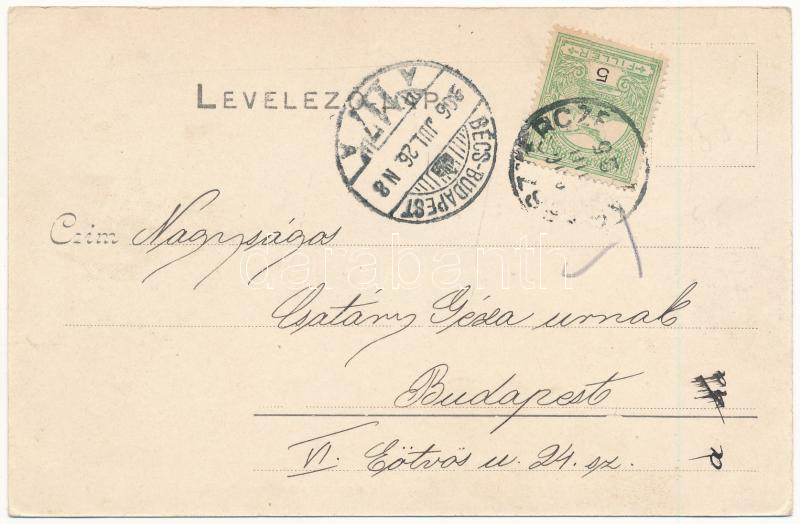 LEVELEZŐ LAP
FILLÉR
5
906 JUL. 26. N 8
BÉCS-BUDAPEST
A A
Czim Nagyságos
darabanth
Csatáry Géza urnak
Budapest
VI. Eötvös u. 24. sz.